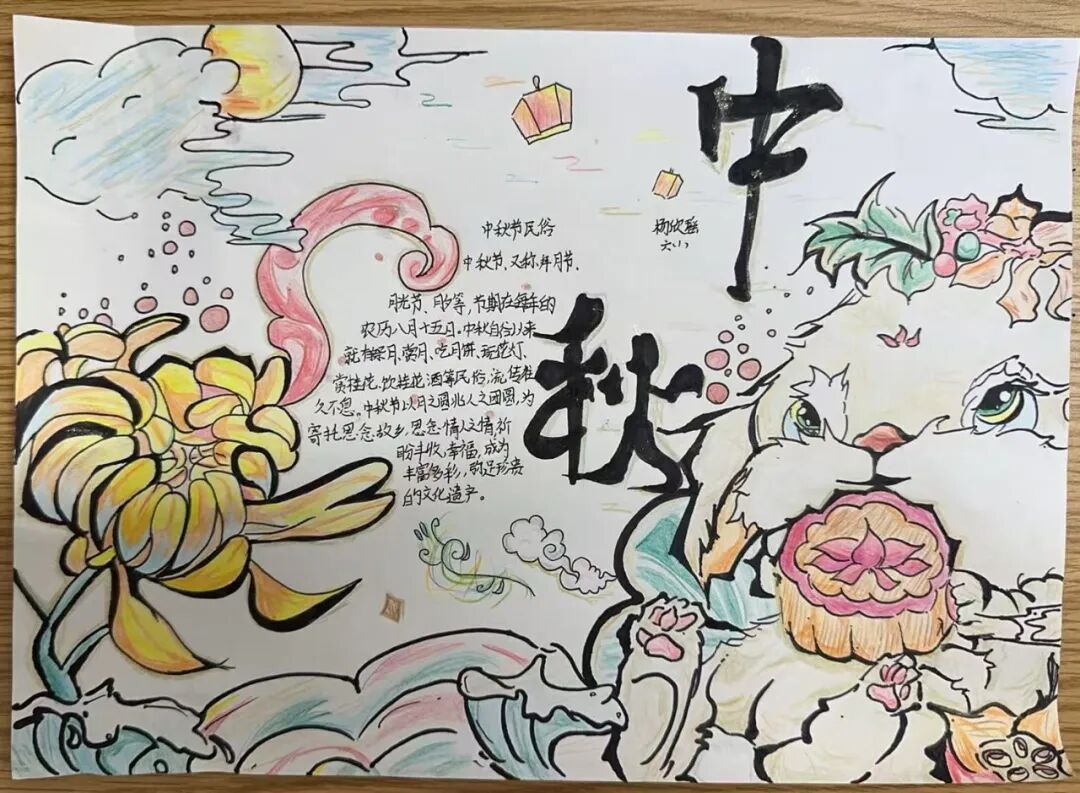 中
秋
杨欣瑶
六(1)
中秋节民俗
中秋节、又称拜月节、
月光节、月夕等，节期在每年的
农历八月十五日。中秋自古以来
就有祭月、赏月、吃月饼、玩花灯、
赏桂花、饮桂花酒等民俗，流传至
久不息。中秋节以月之圆兆人之团圆，为
寄托思念故乡，思念情人之情，祈
盼丰收、幸福，成为
丰富多彩，弥足珍贵
的文化遗产。